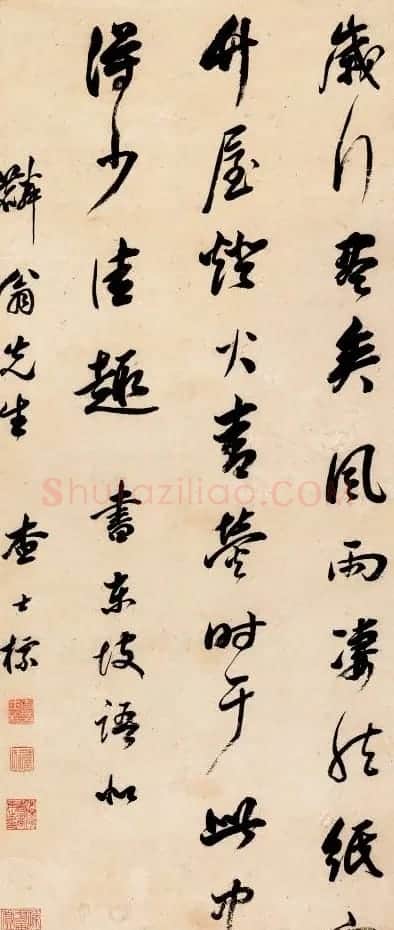 歲行盡矣風雨淒然紙
竹屋燈火青熒時于此中
得少佳趣 書東坡語似
麟翁先生 查士標
Shufaziliao.com